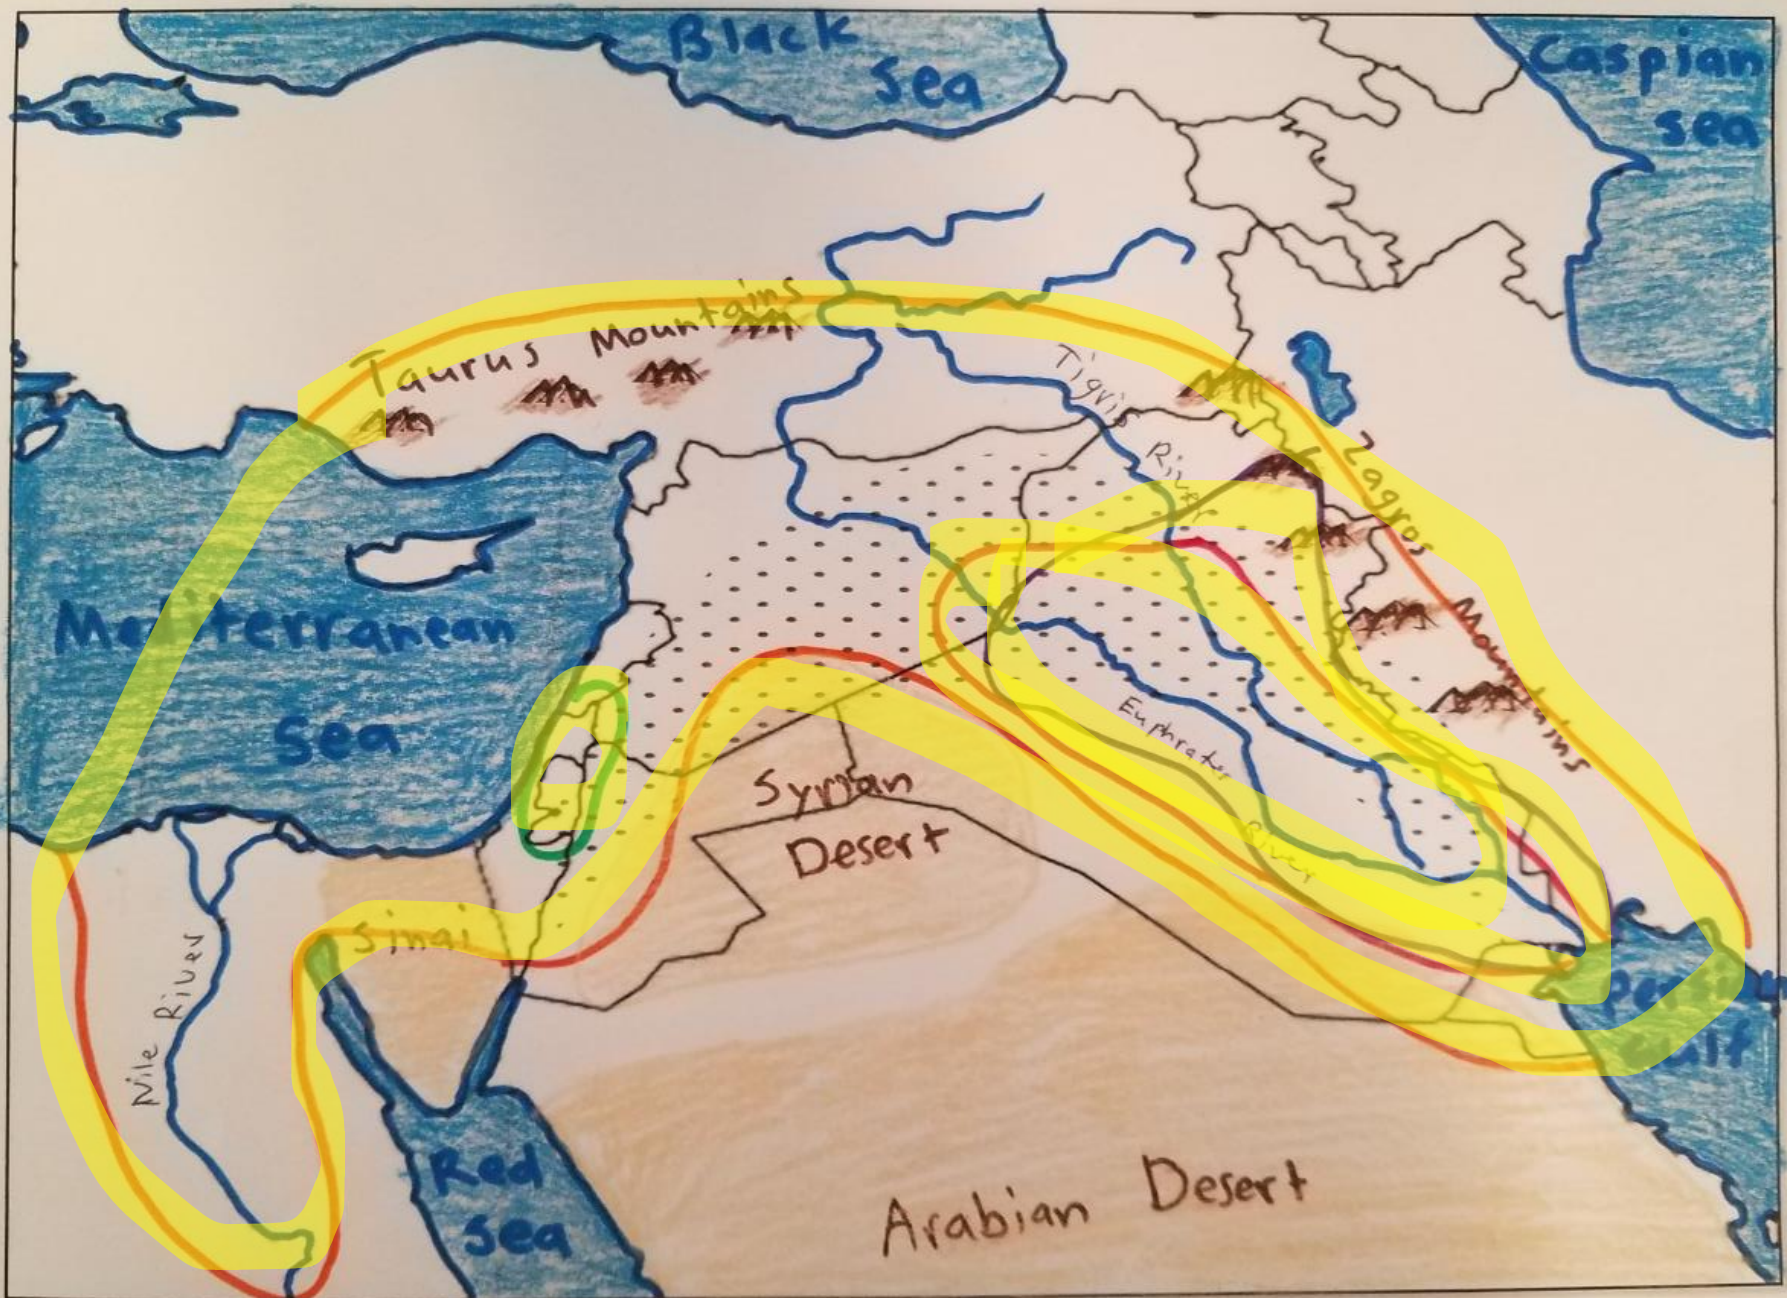 Black
Sea
Caspian
sea
Taurus Mountains
Tigris
River
Zagros
Mountains
Mediterranean
Sea
Euphrates
River
Syrian
Desert
Sinai
Nile River
Persian
Gulf
Red
Sea
Arabian Desert